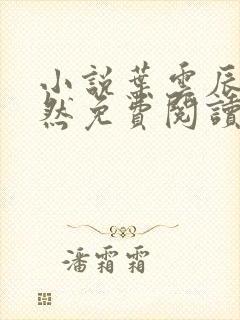 小説葉雲辰
然免費閱讀
潘霜霜